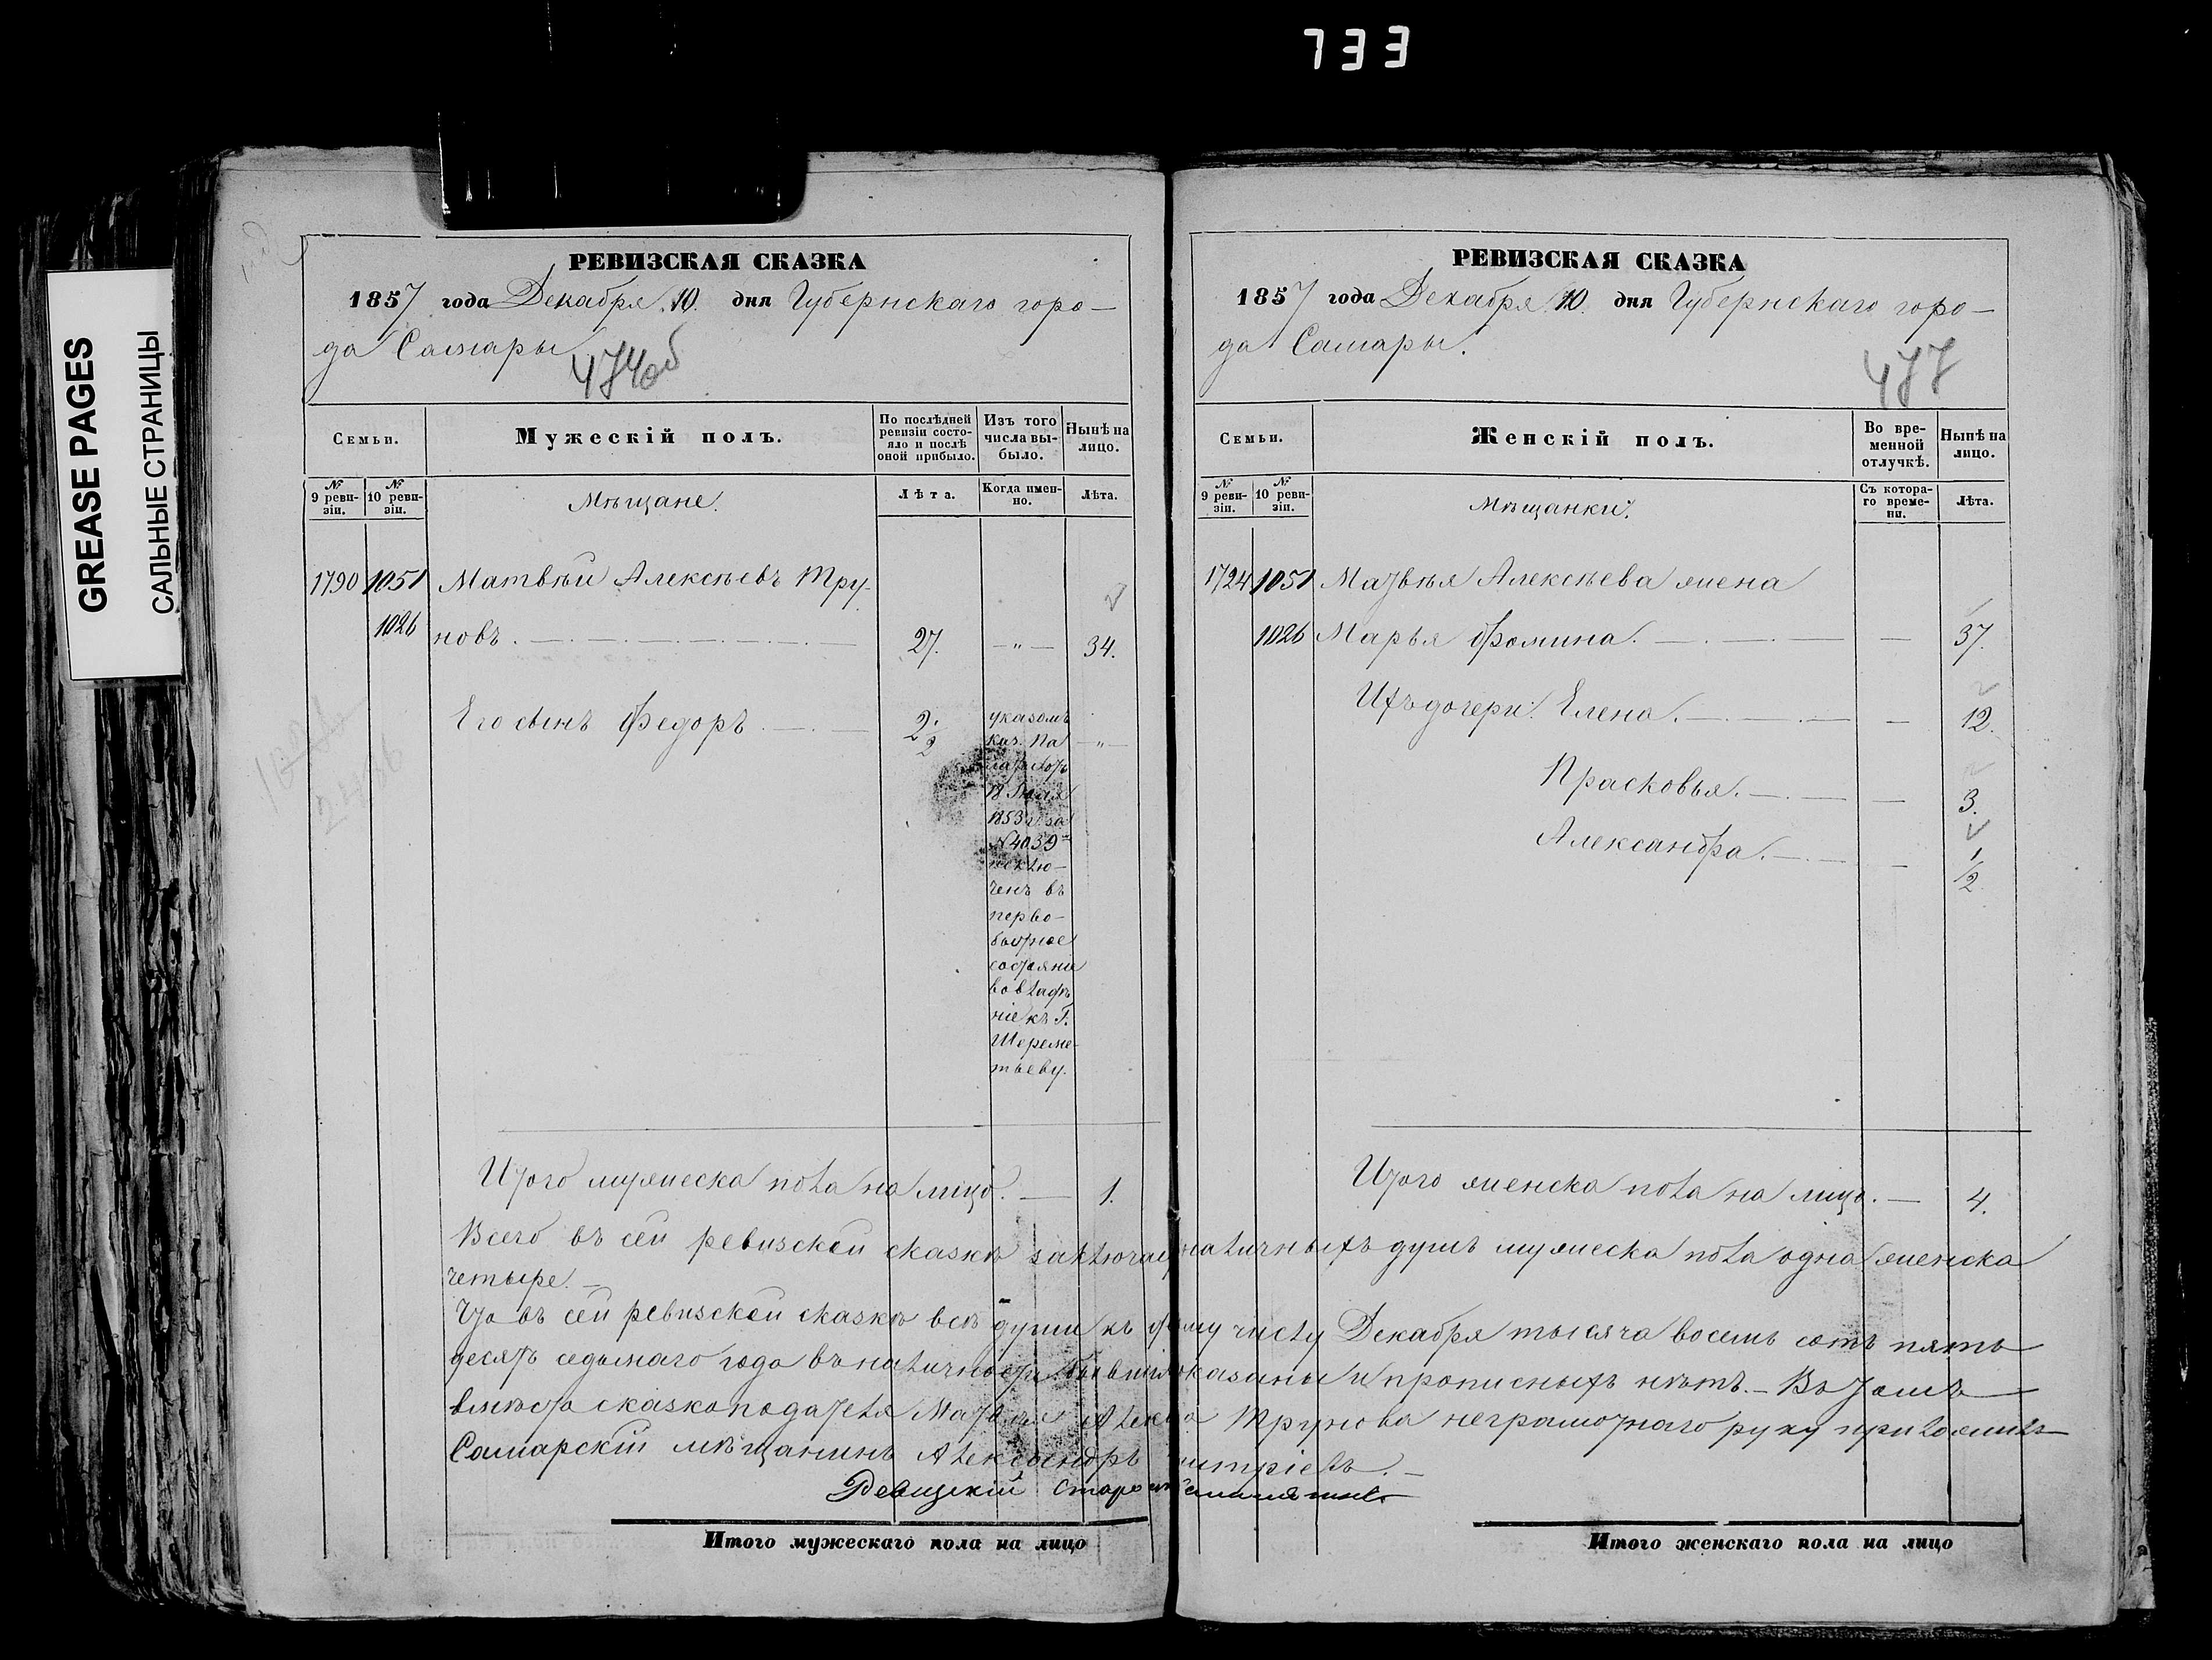 733
GREASE PAGES
САЛЬНЫЕ СТРАНИЦЫ
РЕВИЗСКАЯ СКАЗКА
1857 года Декабря 10. дня Губернскаго горо-
да Самары
474об
Семьи.
Мужескій полъ.
По послѣдней ревизіи состо-яло и послѣ оной прибыло.
Изъ того числа вы-было.
Нынѣ на лицо.
№ 9 реви-зіи.
№ 10 реви-зіи.
Мѣщане.
Лѣта.
Когда имен-но.
Лѣта.
1790 1051 Матвѣй Алексѣевъ Тру-
1026 новъ. 27. — „ — 34.
Его сынъ Федоръ 2 1/2 — „ —
указомъ
каз. Па
18 Іюля
1853 г. за
№ 4039
исклю-
ченъ въ
перво-
бытное
состояніе
во владѣ
ніе къ Г.
Шереме-
тьеву.
Итого мужеска пола на лицо. — 1.
РЕВИЗСКАЯ СКАЗКА
1857 года Декабря 10. дня Губернскаго горо-
да Самары.
477
Семьи.
Женскій полъ.
Во вре-менной отлучкѣ.
Нынѣ на лицо.
№ 9 реви-зіи.
№ 10 реви-зіи.
Мѣщанки.
Съ котора-го време-ни.
Лѣта.
1724 1051 Матвѣя Алексѣева жена
1026 Марья Фомина. — 37.
Ихъ дочери: Елена. — 12.
Прасковья. — 3.
Александра. — 1/2
Итого женска пола на лицо. — 4.
Всего въ сей ревизской сказкѣ заключает наличныхъ душъ мужеска пола одна женска
четыре. —
Что въ сей ревизской сказкѣ всѣ души къ числу Декабря тысяча восемь сотъ пять
десятъ седьмаго года въ наличности бывшія показаны и прописныхъ нѣтъ. — Въ томъ
вмѣсто сказкоподателя Матвѣя Алексѣ Трунова неграмотнаго руку приложилъ
Самарскій мѣщанинъ Александръ
Ревизскій Старо
Итого мужескаго пола на лицо
Итого женскаго пола на лицо